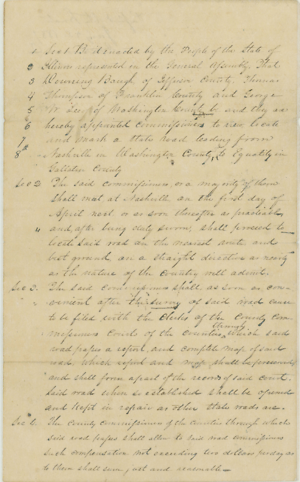 1 Sec 1 Be it enacted by the People of the State of
2 Illinois represented in the General Assembly, That
3 Downing Baugh of Jefferson County, Thomas
4 Thompson of Franklin County and George
5 W Lee of Washington County be and they are
6 hereby appointed Commissioners to view locate
7 and mark a State Road leading from
8 Nashville in Washington County, to Equality in
Gallatin County
Sec 2 The said commissioners, or a majority of them
shall meet at Nashville on the first day of
April next or as soon thereafter as practicable
and after being duly sworn, shall proceed to
locate said road on the nearest route and
best ground on a straight direction as nearly
as the nature of the country will admit.
Sec 3. The said commissioners shall, as soon as con
venient after the survey of said road cause
to be filed with the Clerks of the County Com
missioners Court of the Counties through which said
road passes a report, and complete map of said
road, which report and map shall be preserved
and shall form a part of the record of said court.
Said road when so established shall be opened
and kept in repair as other State roads are.
Sec 4. The county commissioners of the counties through which
said road passes shall allow to said road commissioners
such compensation not exceeding two dollars per day as
to them shall seem just and reasonable